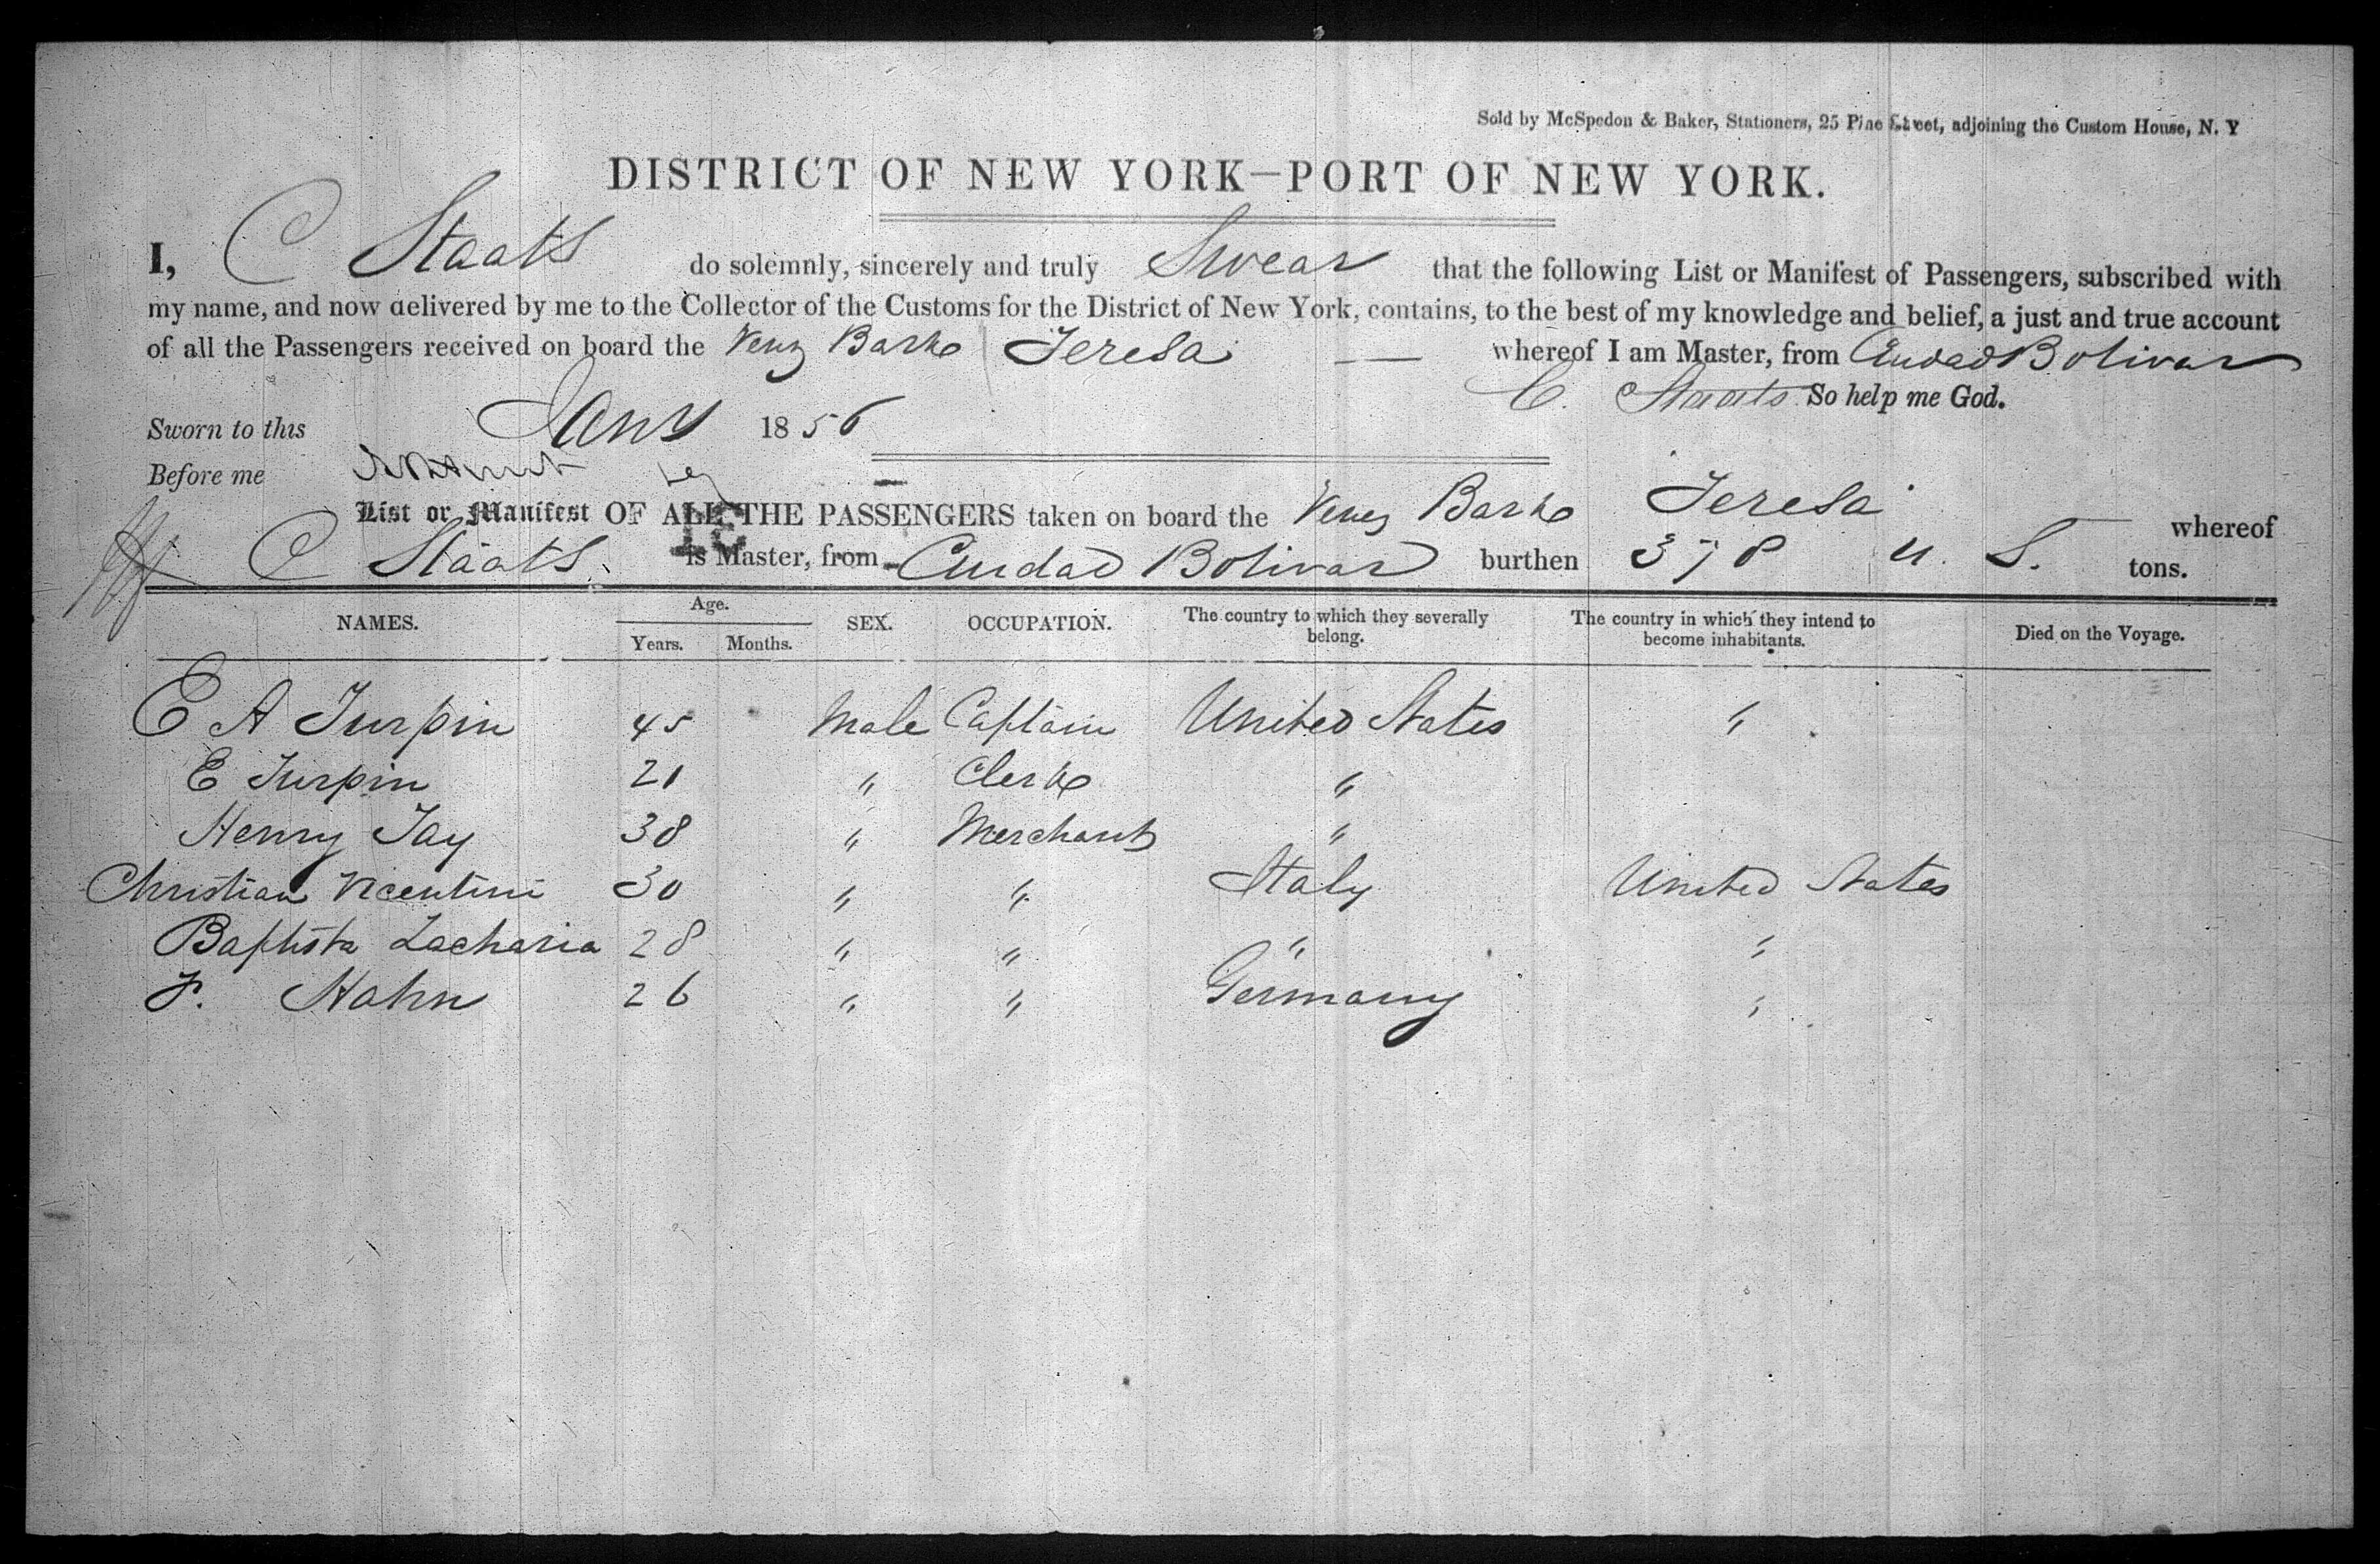 Sold by McSpedon & Baker, Stationers, 25 Pine Street, adjoining the Custom House, N. Y
DISTRICT OF NEW YORK—PORT OF NEW YORK.
I, C Staats do solemnly, sincerely and truly Swear that the following List or Manifest of Passengers, subscribed with
my name, and now delivered by me to the Collector of the Customs for the District of New York, contains, to the best of my knowledge and belief, a just and true account
of all the Passengers received on board the Venz Barke Teresa — whereof I am Master, from Ciudad Bolivar
C. Staats So help me God.
Sworn to this Jany 1856
Before me
List or Manifest OF ALL THE PASSENGERS taken on board the Venez Barke Teresa whereof
C Staats is Master, from Ciudad Bolivar burthen 378 U. S. tons.
NAMES. Age. Years. Months. SEX. OCCUPATION. The country to which they severally belong. The country in which they intend to become inhabitants. Died on the Voyage.
E A Turpin 45 Male Captain United States "
E Turpin 21 " Clerke "
Henry Jay 38 " Merchant "
Christian Vicentini 30 " " Italy United States
Baptista Zacharia 28 " " " "
F. Hahn 26 " " Germany "